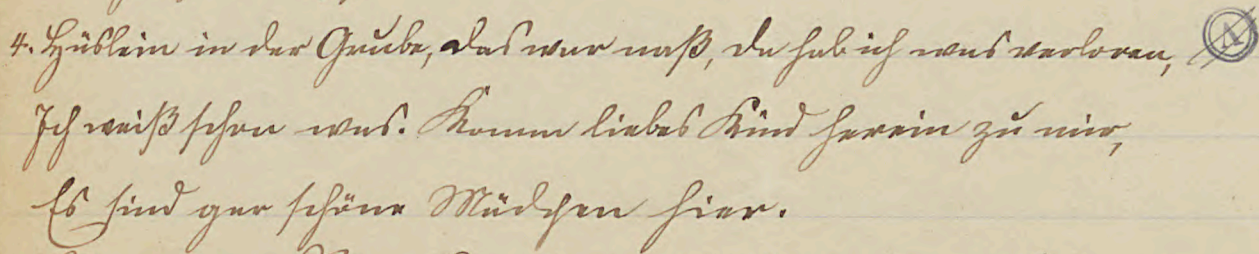 4. Hüslein in der Grube, das war naß, da hab ich was verloren,
Ich weiß schon was. Komm liebes Kind herein zu mir,
Es sind gar schöne Mädchen hier.